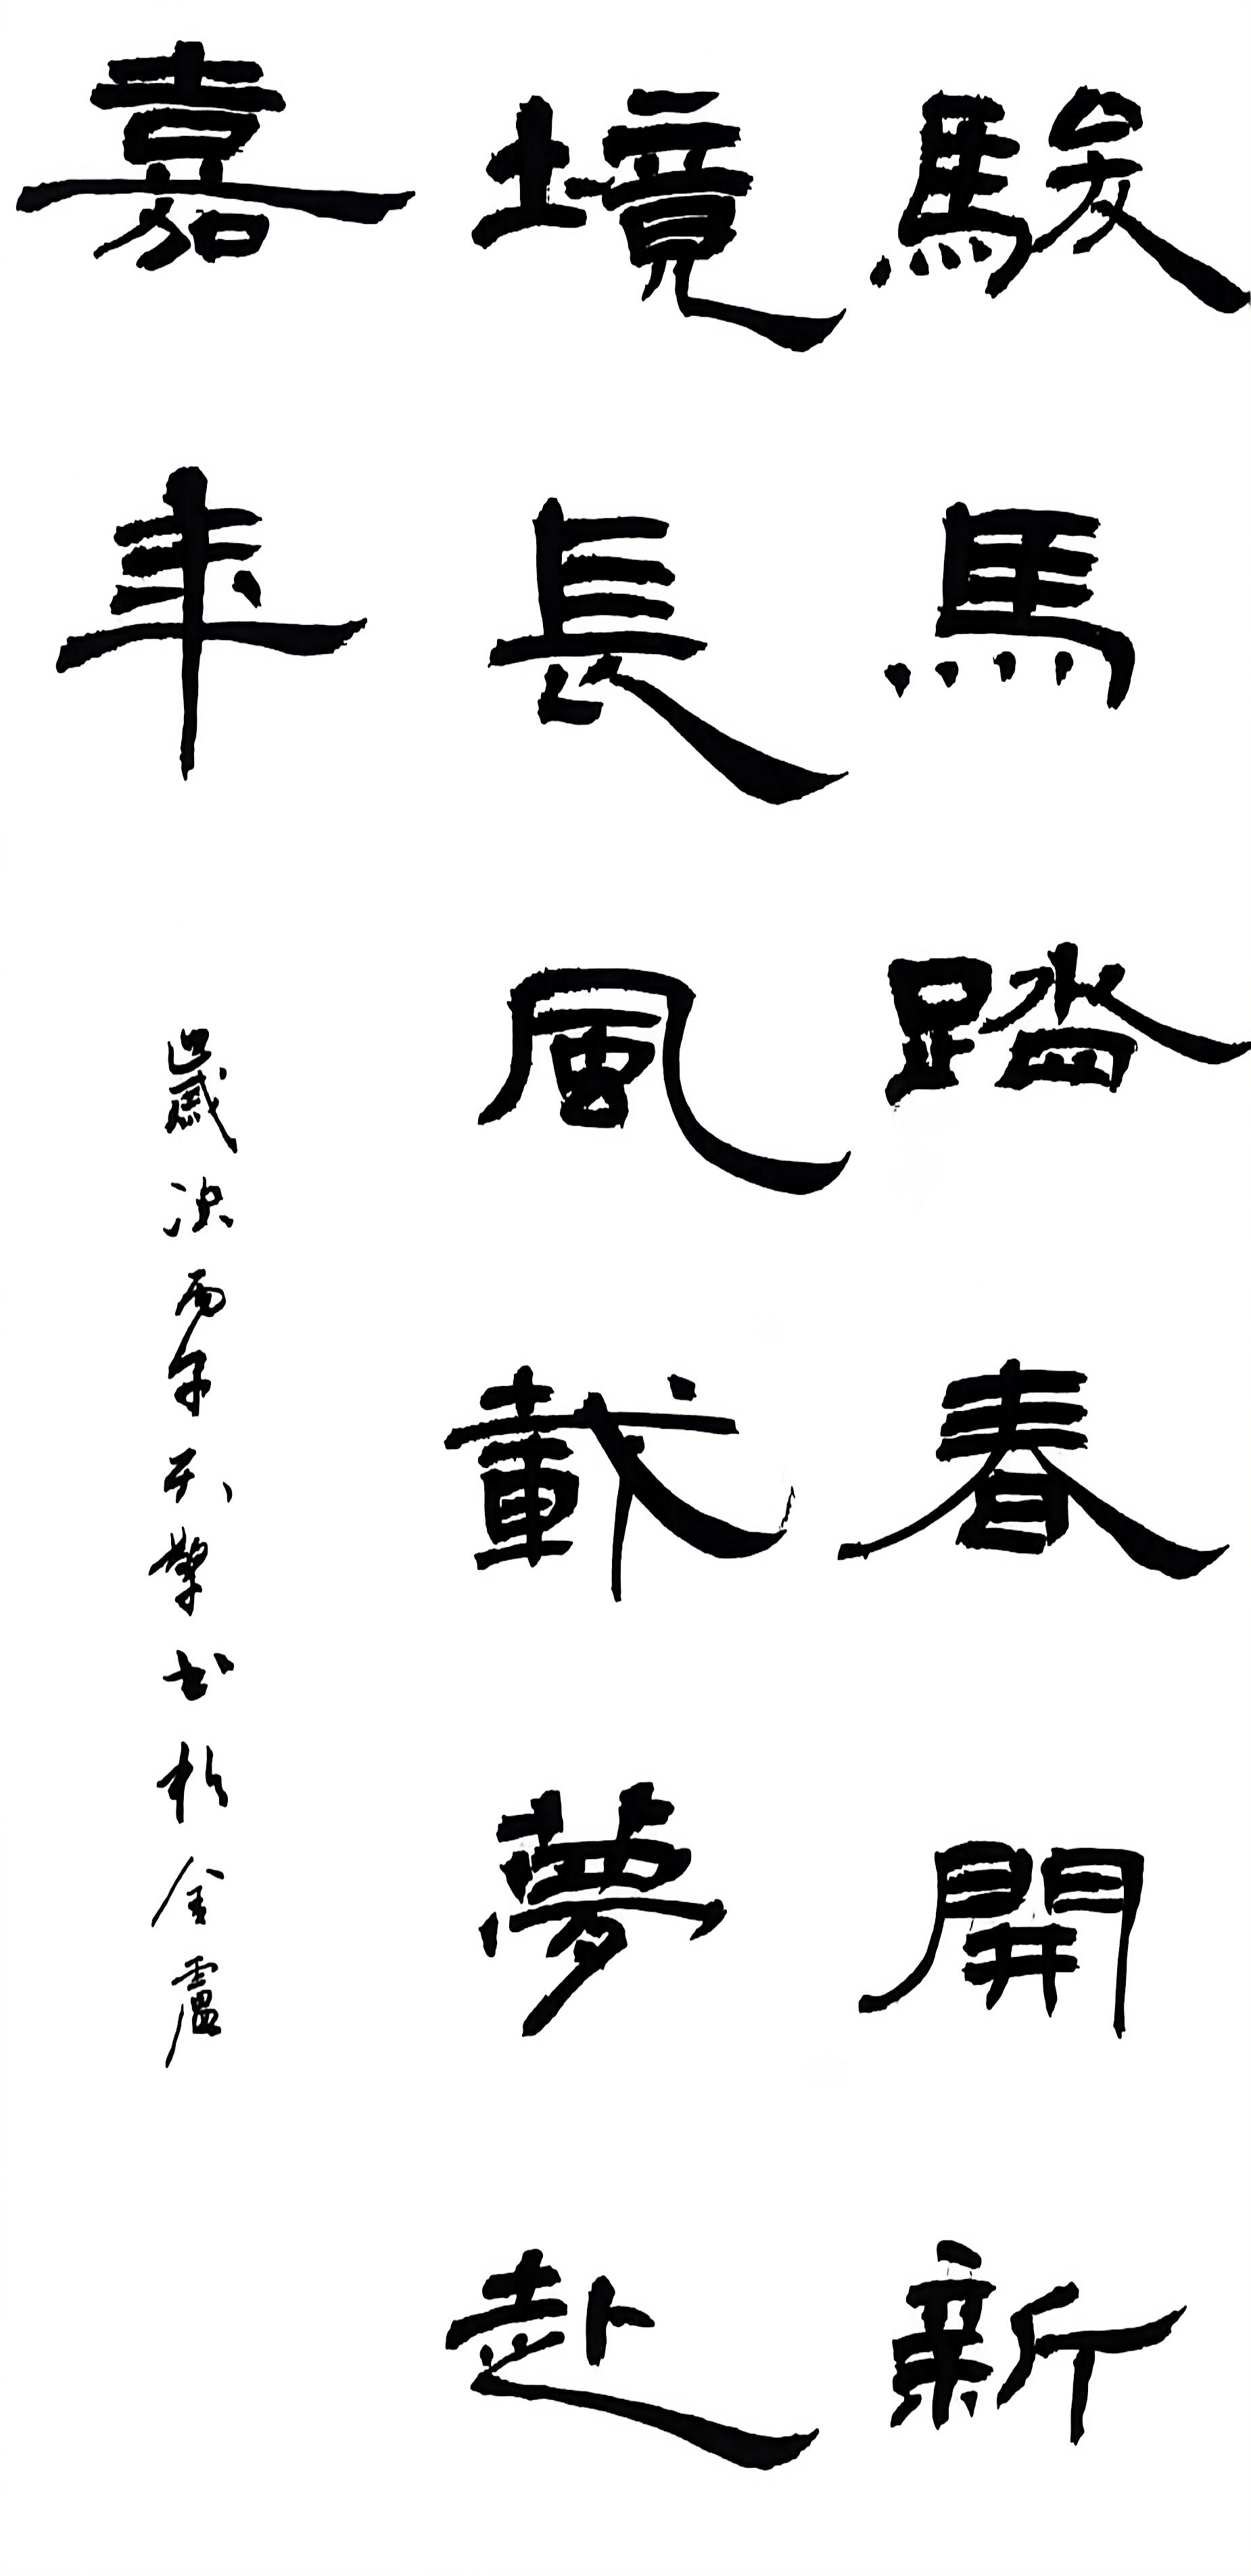 駿馬踏春開新
境長風載夢赴
嘉年
歲次丙午天擎書於金廬